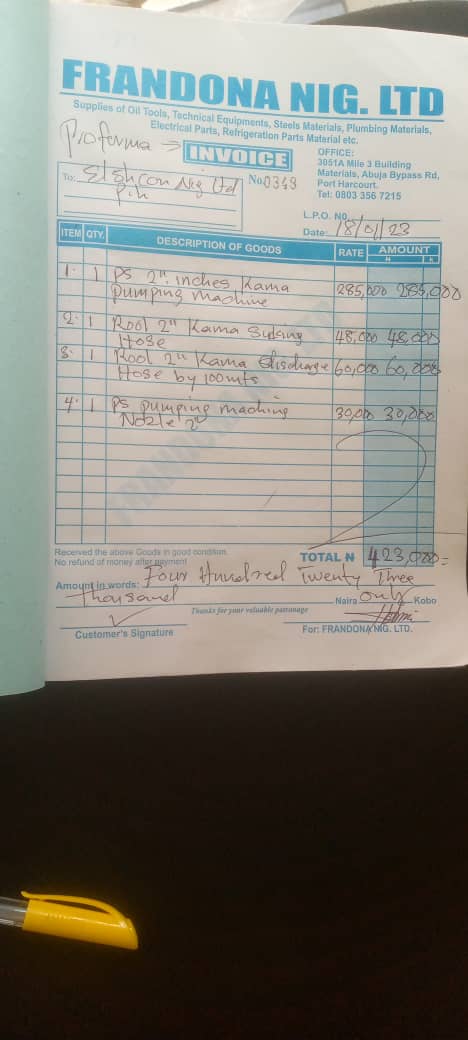 FRANDONA NIG. LTD
Supplies of Oil Tools, Technical Equipments, Steels Materials, Plumbing Materials,
Electrical Parts, Refrigeration Parts Material etc.
Proforma
INVOICE
OFFICE:
3051A Mile 3 Building
Materials, Abuja Bypass Rd,
Port Harcourt.
Tel: 0803 356 7215
To: Elshcon Nig Ltd
P.H
No.0349
L.P.O. NO.
Date: 18/01/23
ITEM QTY. DESCRIPTION OF GOODS RATE AMOUNT
N K
1. 1 Ps 2" inches Kama 285,000 285,000
pumping machine
2. 1 Rool 2" Kama 48,000 48,000
Hose
3. 1 Rool 2" Kama Discharge 60,000 60,000
Hose by 100mts
4. 1 Ps pumping machine 30,000 30,000
Nozle 2"
FRANDONA NIG. LTD
Received the above Goods in good condition.
No refund of money after payment
TOTAL N 423,000=
Amount in words: Four Hundred Twenty Three
Thousand Naira only Kobo
Thanks for your valuable patronage
Customer's Signature
For: FRANDONA NIG. LTD.